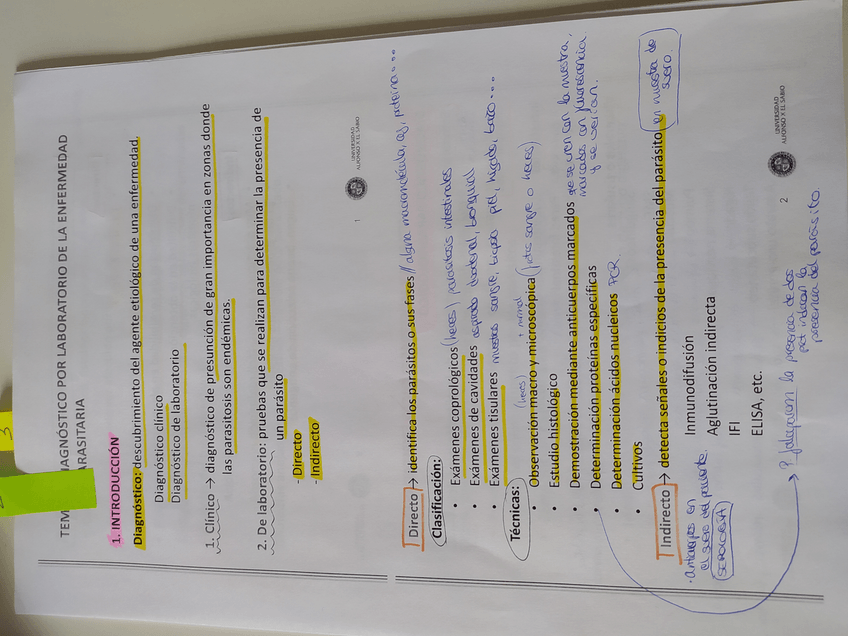 3
TEM
DIAGNÓSTICO POR LABORATORIO DE LA ENFERMEDAD
PARASITARIA
1. INTRODUCCIÓN
Diagnóstico: descubrimiento del agente etiológico de una enfermedad.
Diagnóstico clínico
Diagnóstico de laboratorio
1. Clínico → diagnóstico de presunción de gran importancia en zonas donde
las parasitosis son endémicas.
2. De laboratorio: pruebas que se realizan para determinar la presencia de
un parásito
- Directo
- Indirecto
1
UNIVERSIDAD
ALFONSO X EL SABIO
Directo → identifica los parásitos o sus fases // alguna macromolécula, ag, proteína...
Clasificación:
• Exámenes coprológicos (heces) parasitosis intestinales
• Exámenes de cavidades aspirado duodenal, bronquial
• Exámenes tisulares muestras sangre, biopsia piel, hígado, bazo...
Técnicas: (heces) + normal
• Observación macro y microscópica (frotis sangre o heces)
• Estudio histológico
• Demostración mediante anticuerpos marcados que se unen con la muestra,
marcados con fluorescencia
y se verían.
• Determinación proteínas específicas
• Determinación ácidos nucleicos PCR.
• Cultivos
Indirecto → detecta señales o indicios de la presencia del parásito en muestra de
suero
· Anticuerpos en
el suero del paciente
SEROLOGÍA
Inmunodifusión
Aglutinación indirecta
IFI
ELISA, etc.
la presencia de dos
prot indican la
presencia del parásito
2
UNIVERSIDAD
ALFONSO X EL SABIO